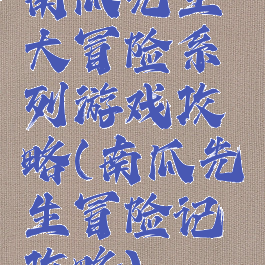 南瓜先生
大冒险系
列游戏攻
略(南瓜先
生冒险记
攻略)